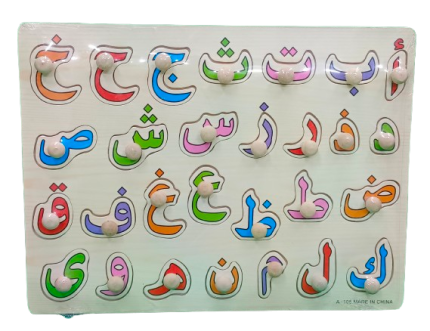 أ ب ت ث ج ح خ
د ذ ر ز س ش ص
ض ط ظ ع غ ف ق
ك ل م ن ه و ى
MADE IN CHINA